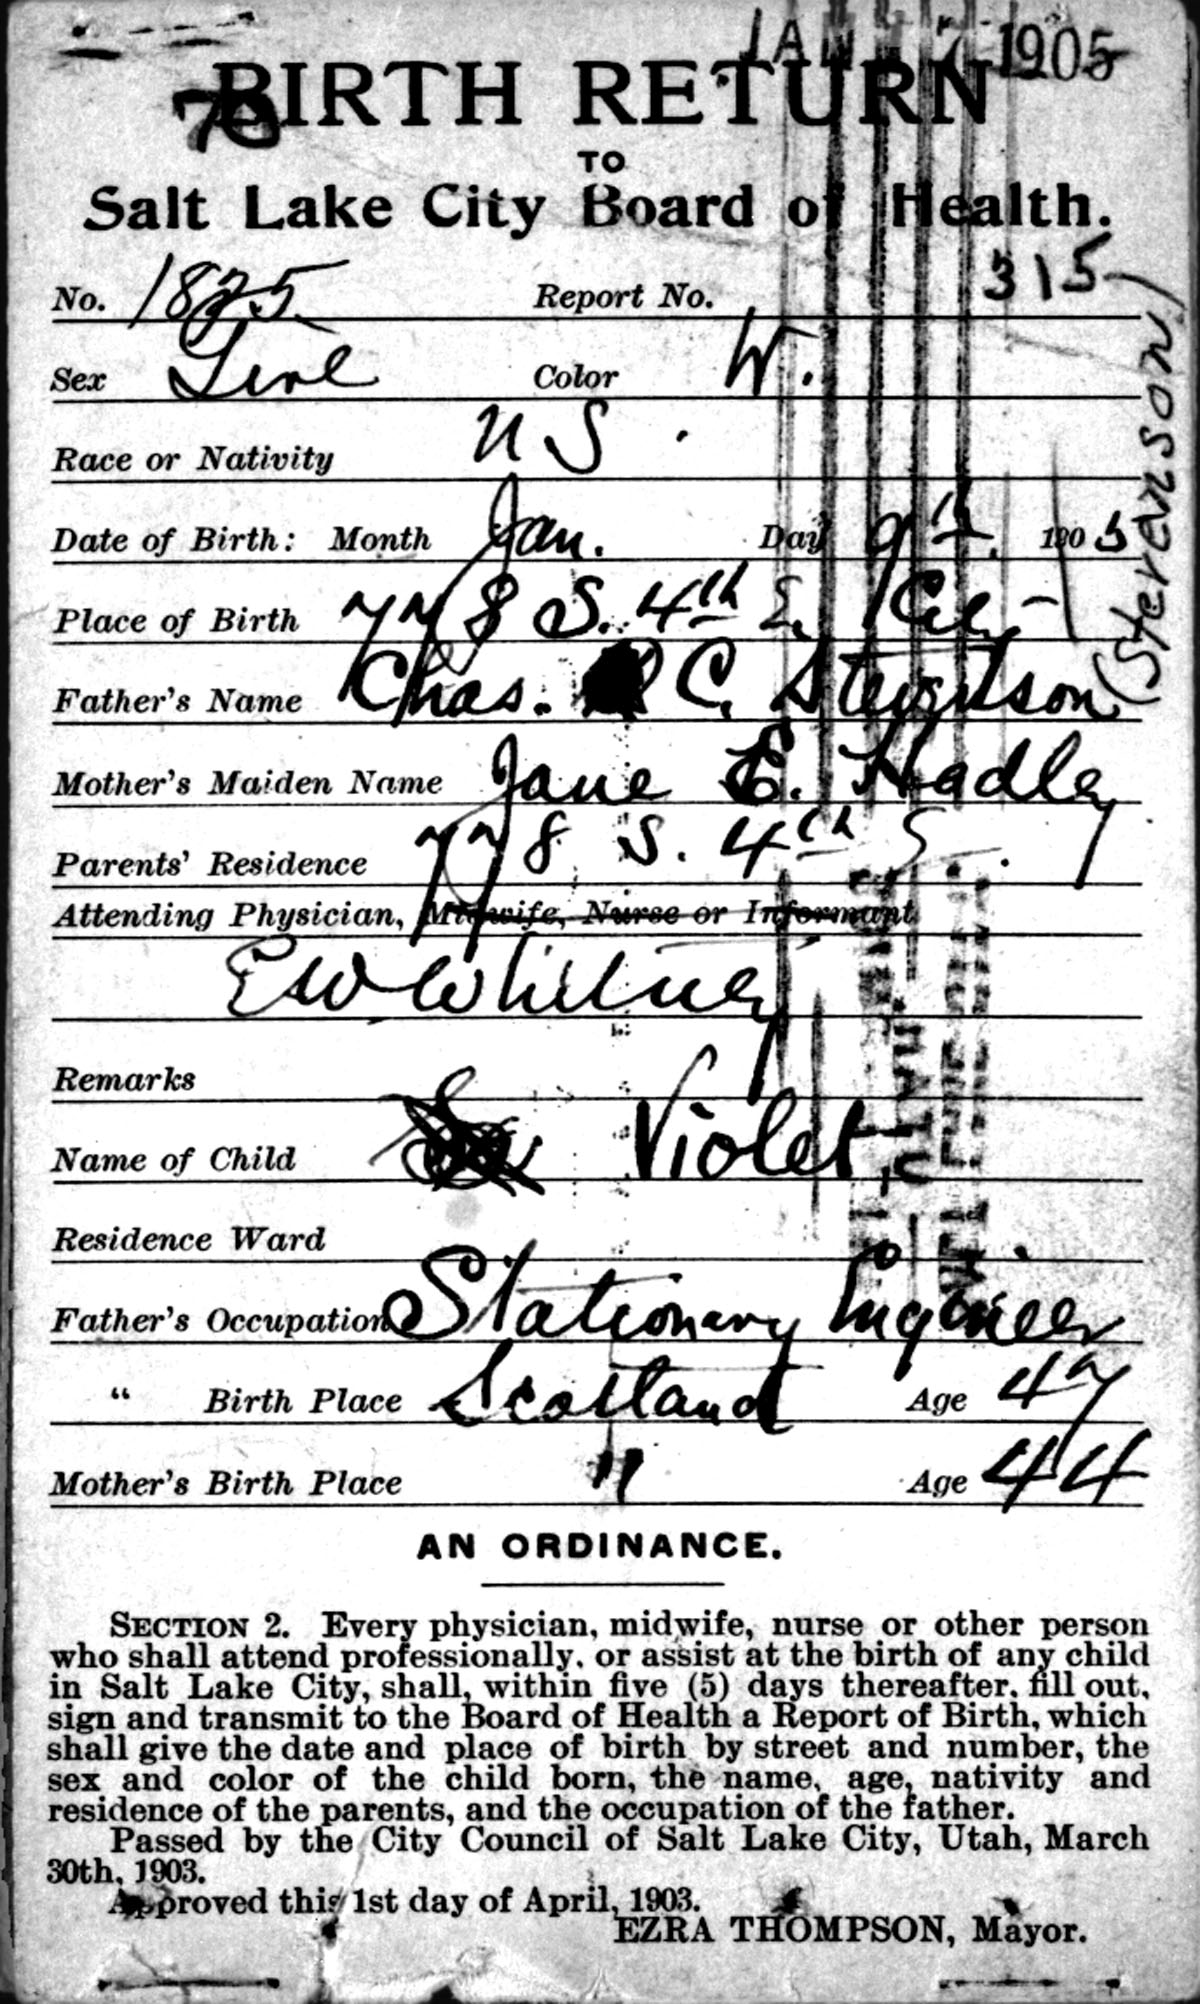 JAN 1905
BIRTH RETURN
70
TO
Salt Lake City Board of Health.
No. 1825 Report No. 315
Sex Girl Color W.
Race or Nativity U S.
Date of Birth: Month Jan. Day 9th. 1905
Place of Birth 778 S. 4th E. City
Father's Name Chas. C. Stevenson
(Stevenson)
Mother's Maiden Name Jane E. Hadley
Parents' Residence 778 S. 4th
Attending Physician, Midwife, Nurse or Informant
E W Whitney
Remarks
Name of Child Violet
Residence Ward
Father's Occupation Stationary Engineer
" Birth Place Scotland Age 47
Mother's Birth Place " Age 44
AN ORDINANCE.
SECTION 2. Every physician, midwife, nurse or other person
who shall attend professionally, or assist at the birth of any child
in Salt Lake City, shall, within five (5) days thereafter, fill out,
sign and transmit to the Board of Health a Report of Birth, which
shall give the date and place of birth by street and number, the
sex and color of the child born, the name, age, nativity and
residence of the parents, and the occupation of the father.
Passed by the City Council of Salt Lake City, Utah, March
30th, 1903.
Approved this 1st day of April, 1903.
EZRA THOMPSON, Mayor.